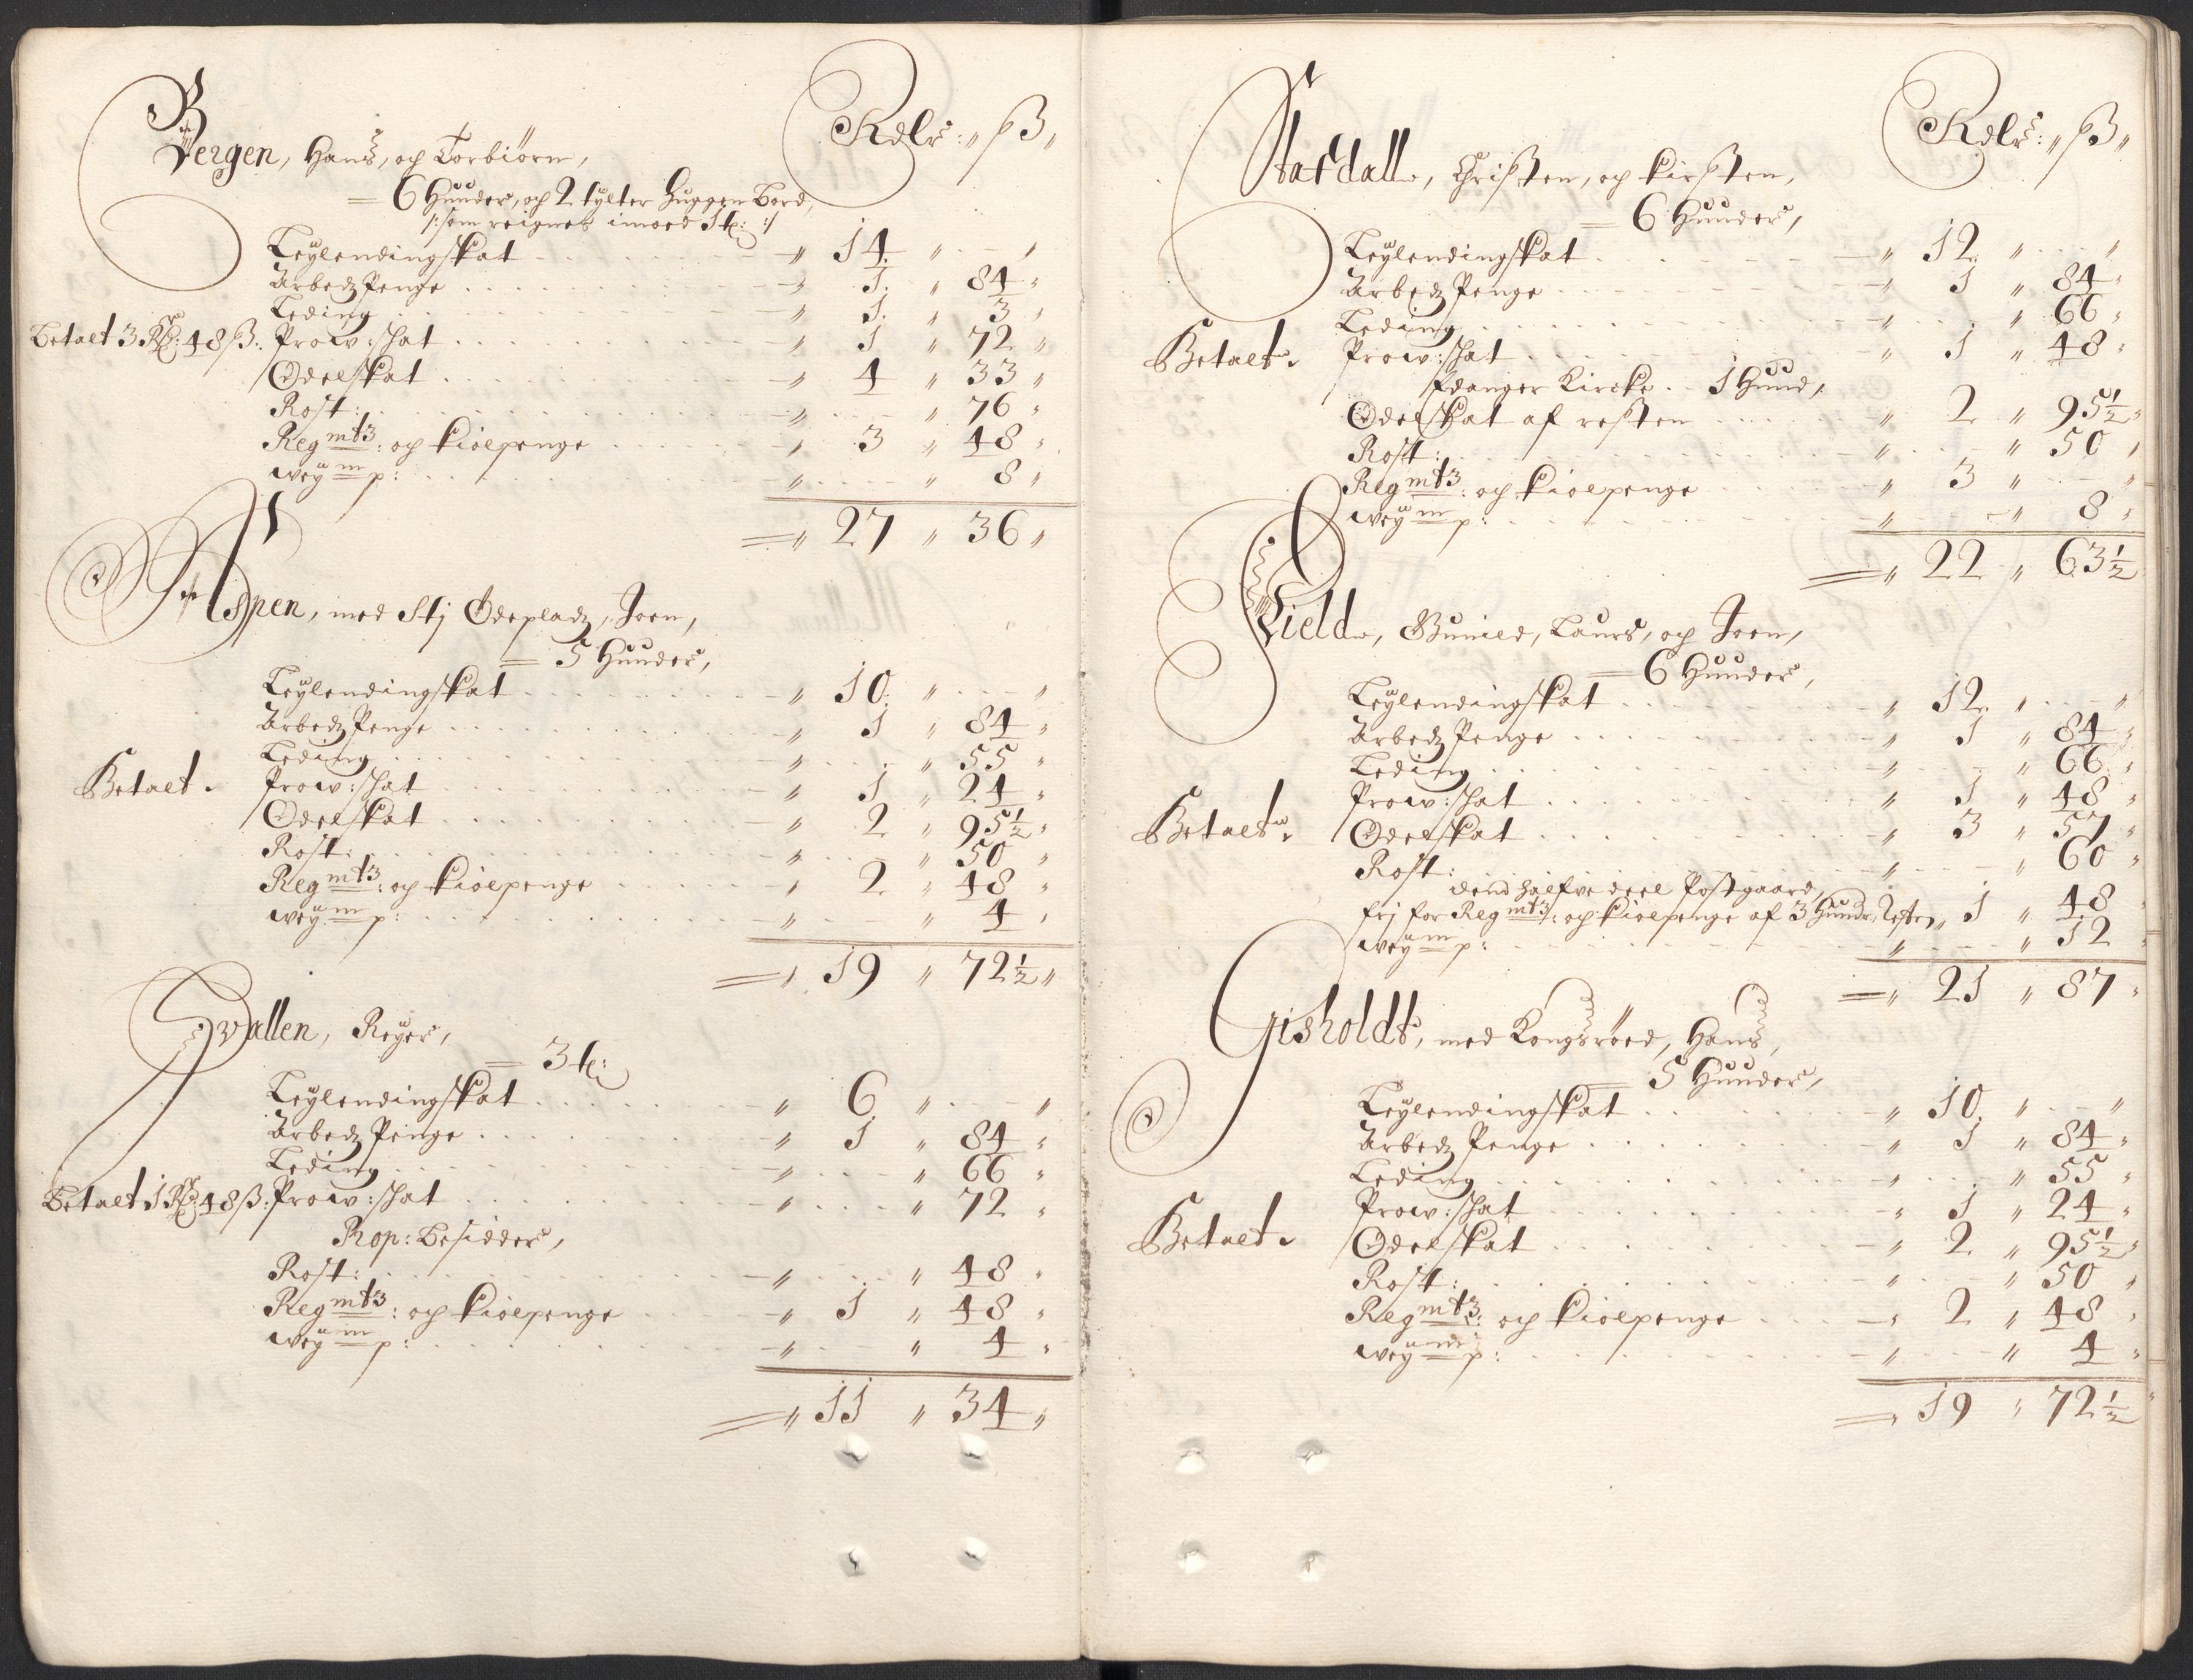 Rdlr: " ß "
Bergen, Hans, og Torbiörn,
= 6 Hunder, og 2 tylter Huggen Bord,
/: som reignes imoed 1 t: :/
Leylendingskat " 14 " - "
Arbedz Penge " 1 " 84 "
Leding " 1 " 3 "
Betalt 3 Rdr: 48 ß: Prov: skat " 1 " 72 "
Odelskat " 4 " 33 "
Rost: " - " 76 "
Reg mt3: og kiolepenge " 3 " 48 "
wey m p: " - " 8 "
= " 27 " 36 "
Aspen, med Stj Ödepladz, Joen,
= 5 Hunder,
Leylendingskat " 10 " - "
Arbedz Penge " 1 " 84 "
Leding " - " 55 "
Betalt. Prov: skat " 1 " 24 "
Odelskat " 2 " 95 1/2 "
Rost: " - " 50 "
Reg mt3: og kiolepenge " 2 " 48 "
wey m p: " - " 4 "
= " 19 " 72 1/2 "
Hvallen, Reyer,
= 3 t:
Leylendingskat " 6 " - "
Arbedz Penge " 1 " 84 "
Leding " - " 66 "
Betalt 1 Rdr: 48 ß: Prov: skat " - " 72 "
Rop: Besidder,
Rost: " - " 48 "
Reg mt3: og kiolepenge " 1 " 48 "
wey m p: " - " 4 "
= " 11 " 34 "
Rdlr: " ß "
Stafdall, Christen, og kirsten,
= 6 Hunder,
Leylendingskat " 12 " - "
Arbedz Penge " 1 " 84 "
Leding " - " 66 "
Betalt. Prov: skat " 1 " 48 "
Edanger Kircke - 1 Hund,
Odelskat af resten " 2 " 95 1/2 "
Rost: " - " 50 "
Reg mt3: og kiolepenge " 3 " - "
wey m p: " - " 8 "
= " 22 " 63 1/2
Field, Gunied, Laurs, og Joen,
= 6 Hunder,
Leylendingskat " 12 " - "
Arbedz Penge " 1 " 84 "
Leding " - " 66 "
Prov: skat " 1 " 48 "
Betalt. Odelskat " 3 " 57 "
Rost: " - " 60 "
dend halfve deel Postgaard,
frj for Reg mt3: og kiolepenge af 3 Hunder, " 1 " 48
wey m p: " - " 12 "
= " 21 " 87 "
Gisholdt, med Kongsröed, Hans,
= 5 Hunder,
Leylendingskat " 10 " - "
Arbedz Penge " 1 " 84 "
Leding " - " 55 "
Prov: skat " 1 " 24 "
Betalt. Odelskat " 2 " 95 1/2 "
Rost: " - " 50 "
Reg mt3: og kiolepenge " 2 " 48 "
wey m p: " - " 4 "
= " 19 " 72 1/2